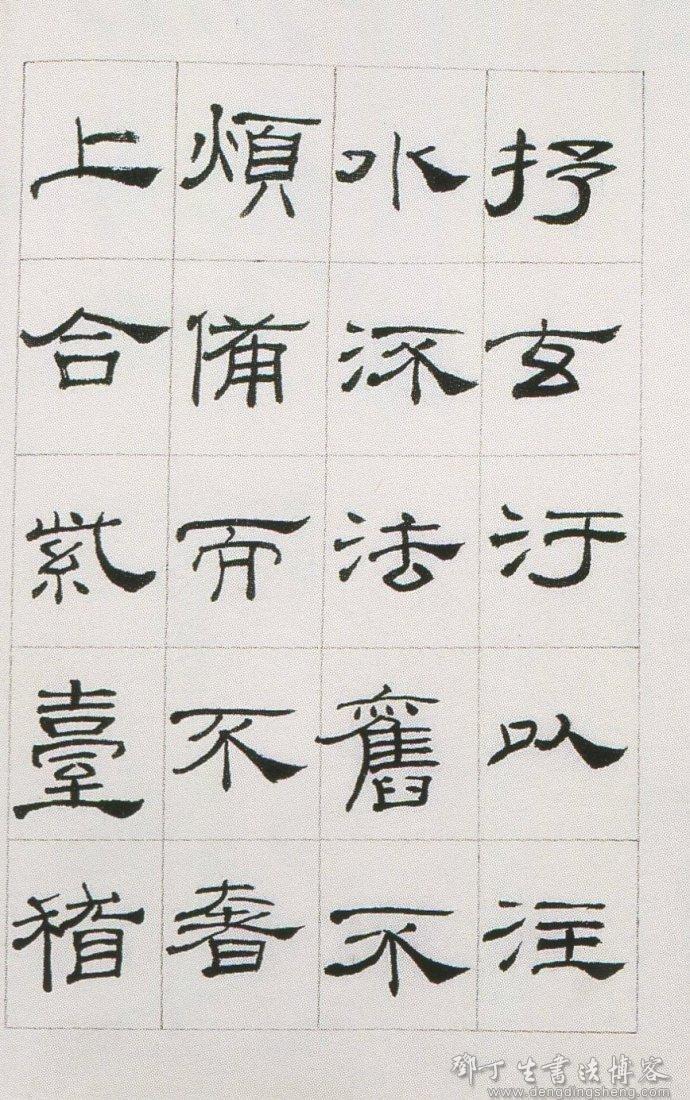 抒玄汙以注
水流法舊不
煩備而不奢
上合紫臺稽
鄧丁生書法博客
www.dengdingsheng.com